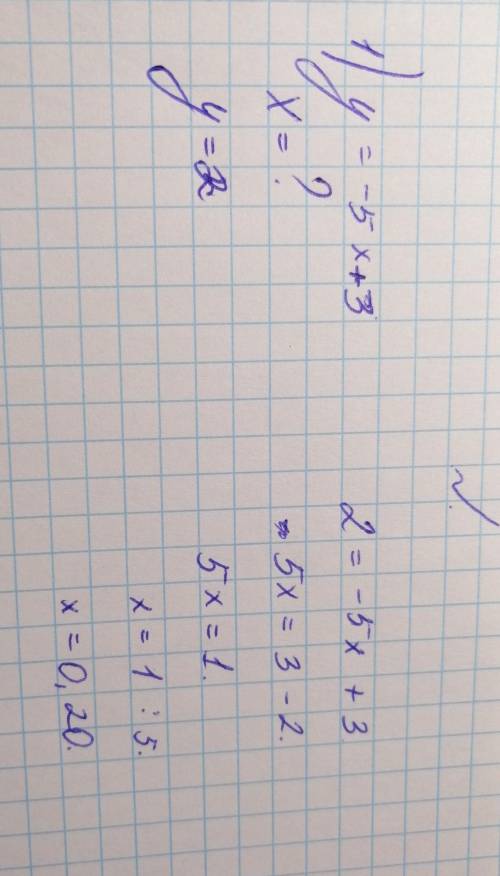 1) y = -5x+3
x = ?
y = 2
2 = -5x + 3
5x = 3 - 2.
5x = 1.
x = 1 : 5.
x = 0,20.